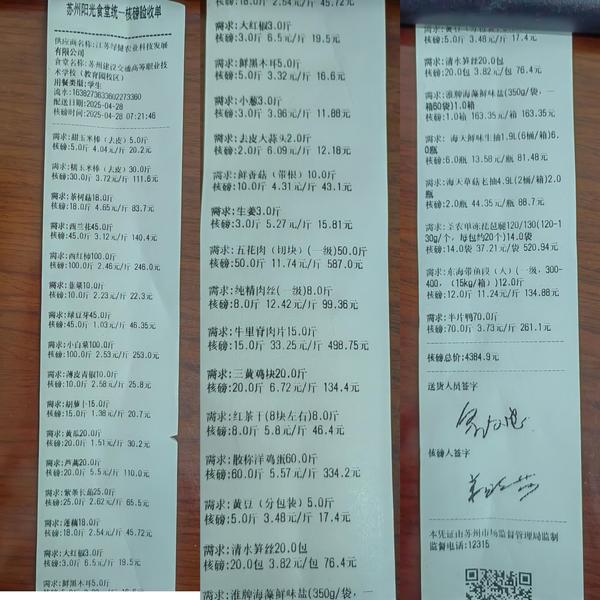 苏州阳光食堂统一核磅验收单
供应商名称:江苏绿健农业科技发展
有限公司
食堂名称:苏州建设交通高等职业技
术学校（教育园校区）
用餐类型:学生
流水:1638273633602273360
配送日期:2025-04-28
核磅时间:2025-04-28 07:21:46
需求:甜玉米棒（去皮）5.0斤
核磅:5.0斤 4.04元/斤 20.2元
需求:糯玉米棒（去皮）30.0斤
核磅:30.0斤 3.72元/斤 111.6元
需求:茶树菇18.0斤
核磅:18.0斤 4.65元/斤 83.7元
需求:西兰花45.0斤
核磅:45.0斤 3.12元/斤 140.4元
需求:西红柿100.0斤
核磅:100.0斤 2.46元/斤 246.0元
需求:韭菜10.0斤
核磅:10.0斤 2.23元/斤 22.3元
需求:绿豆芽45.0斤
核磅:45.0斤 1.03元/斤 46.35元
需求:小白菜100.0斤
核磅:100.0斤 2.53元/斤 253.0元
需求:薄皮青椒10.0斤
核磅:10.0斤 2.58元/斤 25.8元
需求:胡萝卜15.0斤
核磅:15.0斤 1.38元/斤 20.7元
需求:黄瓜20.0斤
核磅:20.0斤 1.51元/斤 30.2元
需求:芦蒿20.0斤
核磅:20.0斤 5.5元/斤 110.0元
需求:紫条长茄25.0斤
核磅:25.0斤 2.62元/斤 65.5元
需求:莲藕18.0斤
核磅:18.0斤 2.54元/斤 45.72元
需求:大红椒3.0斤
核磅:3.0斤 6.5元/斤 19.5元
需求:鲜黑木耳5.0斤
核磅:18.0斤 2.54元/斤 45.72元
需求:大红椒3.0斤
核磅:3.0斤 6.5元/斤 19.5元
需求:鲜黑木耳5.0斤
核磅:5.0斤 3.32元/斤 16.6元
需求:小葱3.0斤
核磅:3.0斤 3.96元/斤 11.88元
需求:去皮大蒜头2.0斤
核磅:2.0斤 6.09元/斤 12.18元
需求:鲜香菇（带根）10.0斤
核磅:10.0斤 4.31元/斤 43.1元
需求:生姜3.0斤
核磅:3.0斤 5.27元/斤 15.81元
需求:五花肉（切块）(一级)50.0斤
核磅:50.0斤 11.74元/斤 587.0元
需求:纯精肉丝(一级)8.0斤
核磅:8.0斤 12.42元/斤 99.36元
需求:牛里脊肉片15.0斤
核磅:15.0斤 33.25元/斤 498.75元
需求:三黄鸡块20.0斤
核磅:20.0斤 6.72元/斤 134.4元
需求:红茶干(8块左右)8.0斤
核磅:8.0斤 5.8元/斤 46.4元
需求:散称洋鸡蛋60.0斤
核磅:60.0斤 5.57元/斤 334.2元
需求:黄豆（分包装）5.0斤
核磅:5.0斤 3.48元/斤 17.4元
需求:清水笋丝20.0包
核磅:20.0包 3.82元/包 76.4元
需求:淮牌海藻鲜味盐(350g/袋，一
需求:黄豆（分包装）5.0斤
核磅:5.0斤 3.48元/斤 17.4元
需求:清水笋丝20.0包
核磅:20.0包 3.82元/包 76.4元
需求:淮牌海藻鲜味盐(350g/袋，一
箱60袋)1.0箱
核磅:1.0箱 163.35元/箱 163.35元
需求:海天鲜味生抽1.9L(6桶/箱)6.
0瓶
核磅:6.0瓶 13.58元/瓶 81.48元
需求:海天草菇老抽4.9L(2桶/箱)2.0
瓶
核磅:2.0瓶 44.35元/瓶 88.7元
需求:圣农单冻琵琶腿120/130(120-1
30g/个，每包约20个)14.0袋
核磅:14.0袋 37.21元/袋 520.94元
需求:东海带鱼段（大）(一级，300-
400，（15kg/箱）)12.0斤
核磅:12.0斤 11.24元/斤 134.88元
需求:半片鸭70.0斤
核磅:70.0斤 3.73元/斤 261.1元
核磅总价:4384.9元
送货人员签字
核磅人签字
本凭证由苏州市场监督管理局监制
监督电话:12315